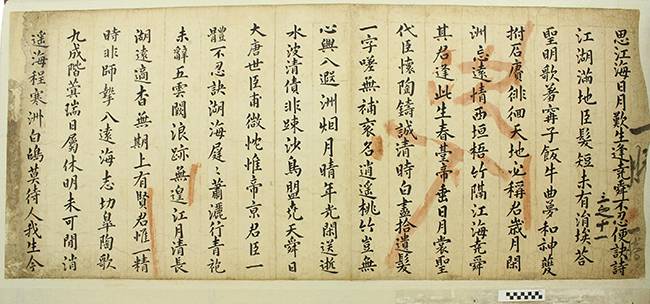 思江海日月歎生逢堯舜不忍便訣詩
三之十一
江湖滿地臣髮短未有涓埃荅
聖明歌著甯子飯牛曲夢和神夔
拊石賡徘徊天地必稱名歲月閑
洲忘遠情西垣梧竹隔江海幸舜
其君逢此生春臺帝垂日月裳聖
代臣懷陶鑄誠清時白盡拾遺髮
一字嗟無補袞名逍遥桃竹豈無
心興八遐洲月晴年光閑送逝
水波清債非踈沙鳥盟堯天舜日
大唐世臣甫微忱惟帝京君臣一
體不忍訣湖海屣〻蕭灑行青袍
未辭五雲闕浪跡無遑江月清長
湖遠適杳無期上有賢君惟一精
時非師摯八遠海志切皐陶歌
九成階蓂瑞日屬休明未可閒消
遥海程寒洲白鴣莫待人我生今